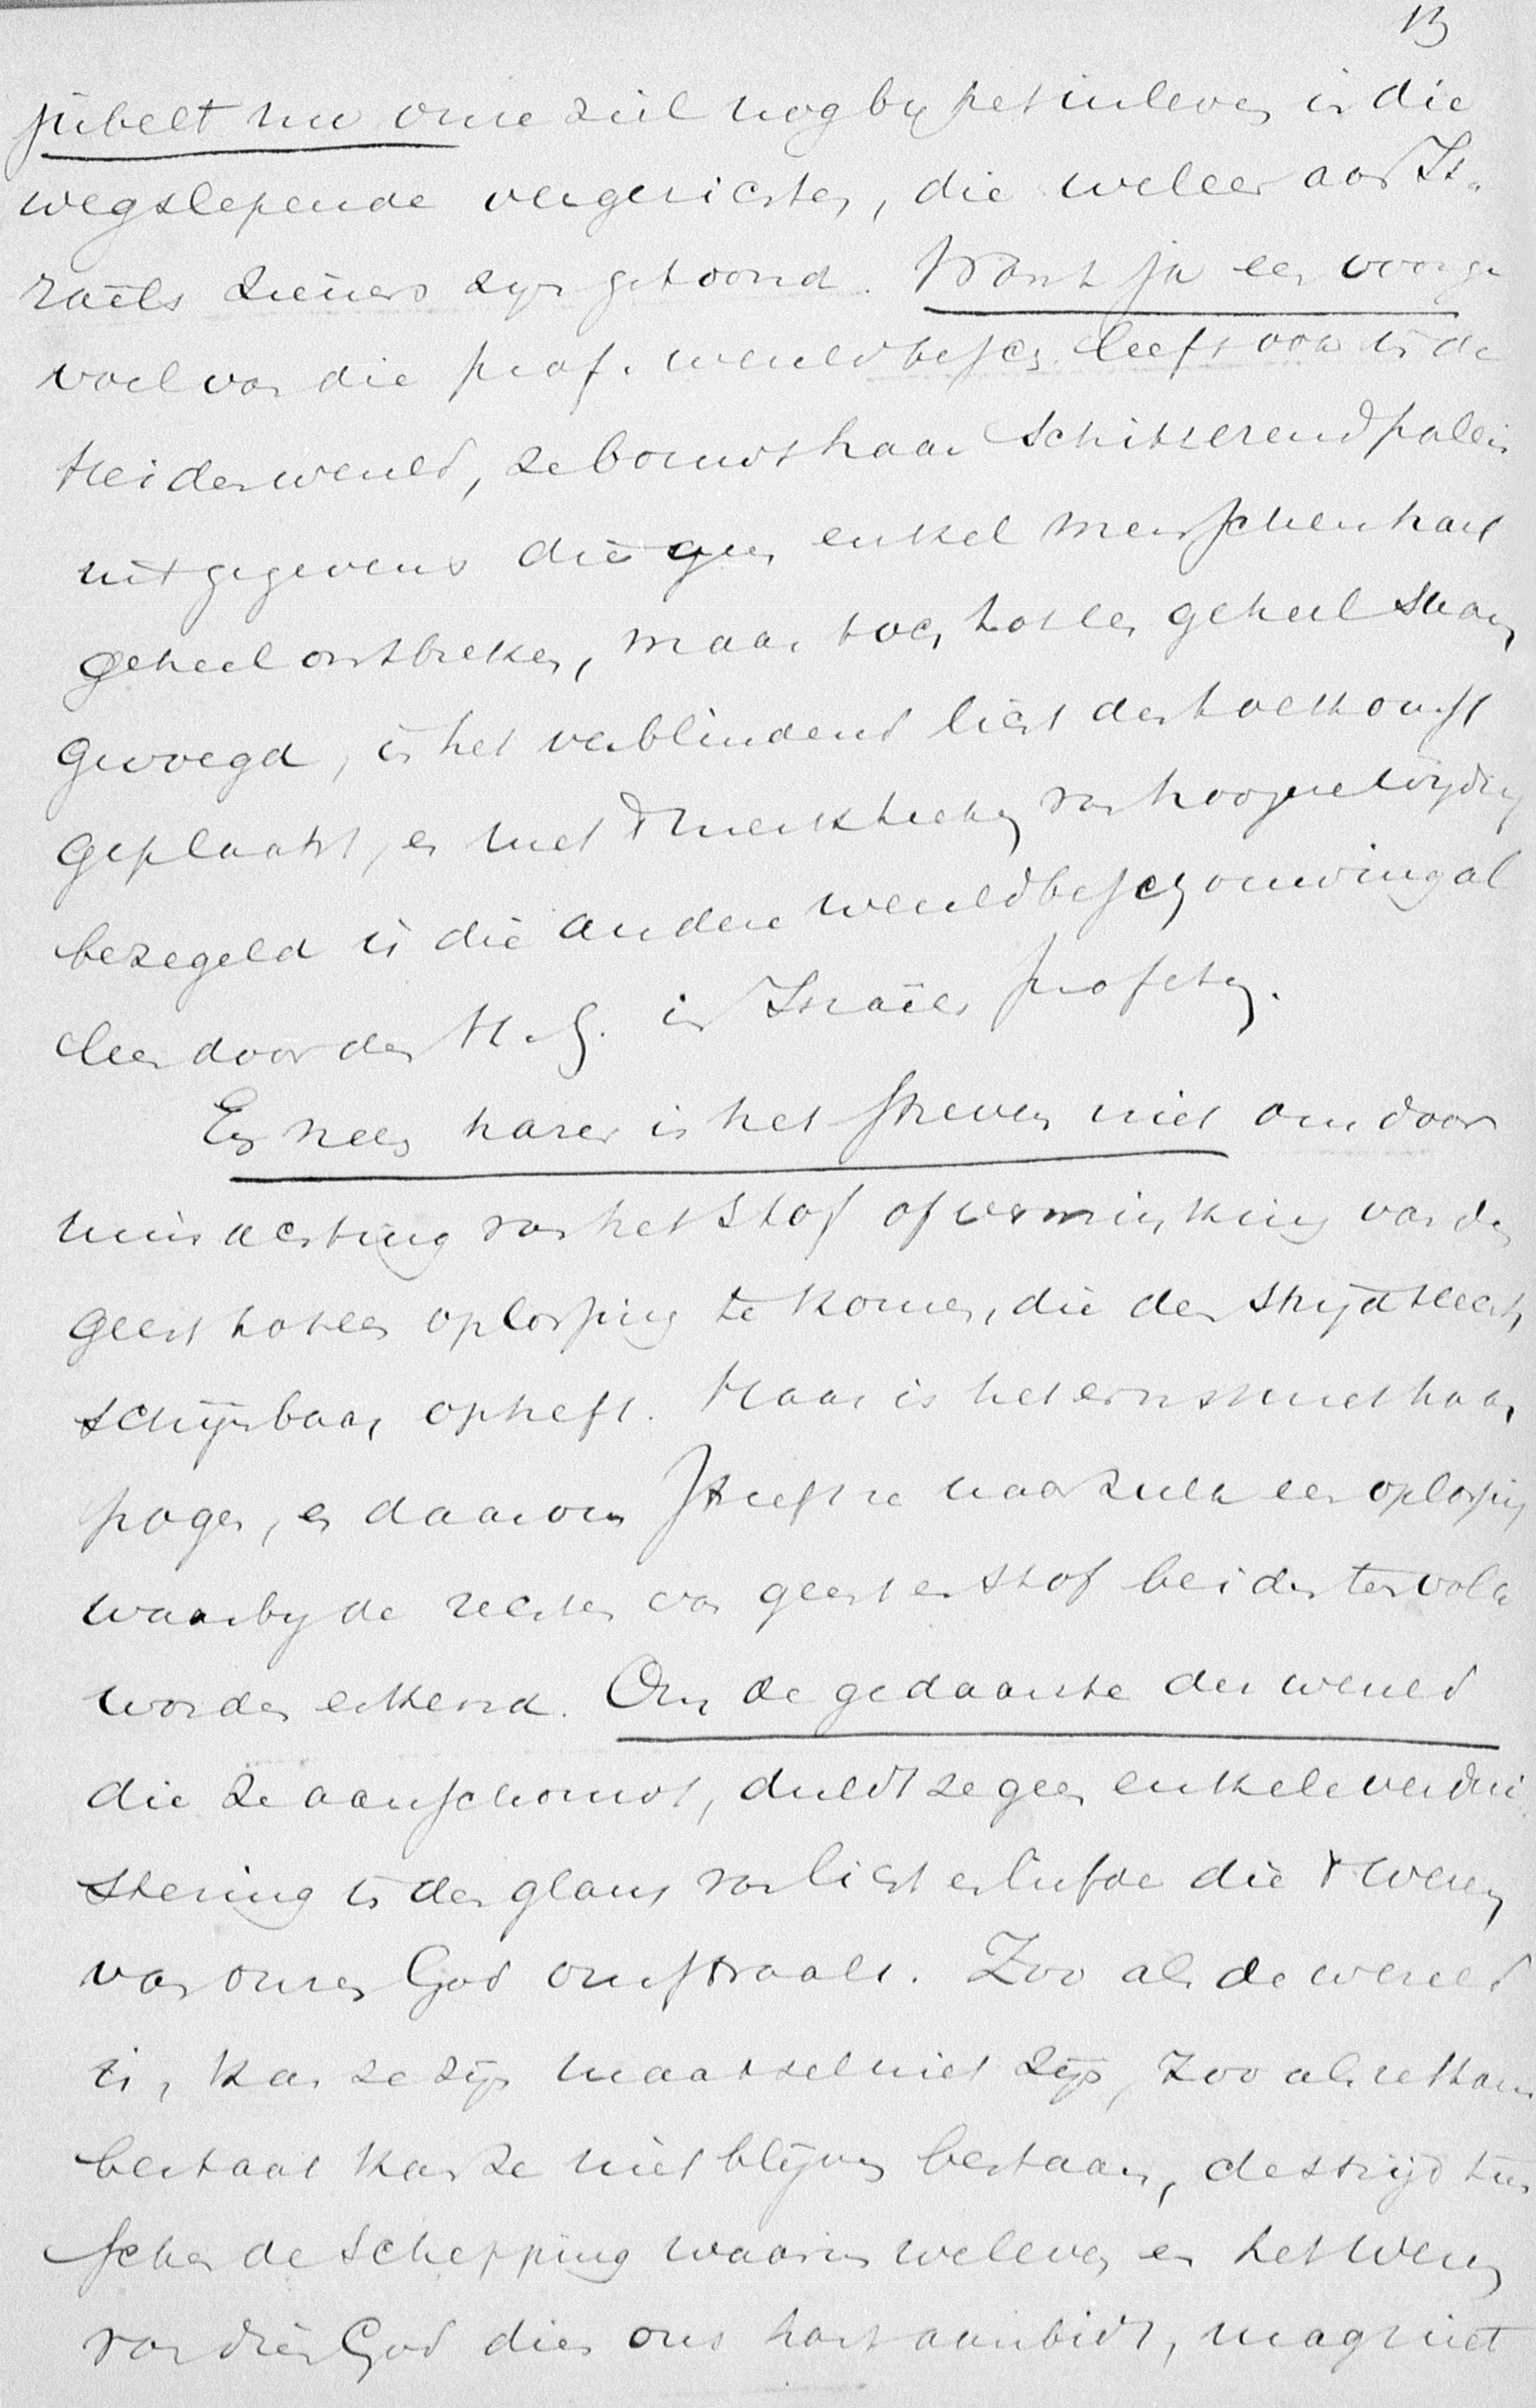 13
jubelt nu onze ziel nog by het inleven in die
wegslepende vergezichten, die weleer aan Is-
raëls zieners zyn getoond. Want ja een voorge
voel van die prof. wereldbesch. leeft ook in de
Heidenwereld, ze bouwt haar schitterend paleis
uit gegevens die geen enkel menschenhart
geheel ontbreken, maar toch tot een geheel saam
gevoegd, in het verblindend licht der toekomst
geplaatst, en met 't merkteeken van hoogere wijding
bezegeld is die andere wereldbeschouwing al
leen door den H. G. in Israëls profeten.
En neen haar is het streven niet om door
minachting van het stof of verminking van den
geest tot een oplossing te komen, die den strijd slechts
schijnbaar opheft. Haar is het ernst met haar
pogen, en daarom streeft ze naar zulk een oplossing
waarby de rechten van geest en stof beiden ten volle
worden erkend. Om de gedaante der wereld
die ze aanschouwt, duldt ze geen enkele verdui
stering in den glans van licht en liefde die 't wezen
van onzen God omstraalt. Zoo als de wereld
is, kan ze zijn maaksel niet zijn, zoo als ze thans
bestaat kan ze niet blijven bestaan, de strijd tus
schen de schepping waarin we leven en het wezen
van dien God dien ons hart aanbidt, mag niet